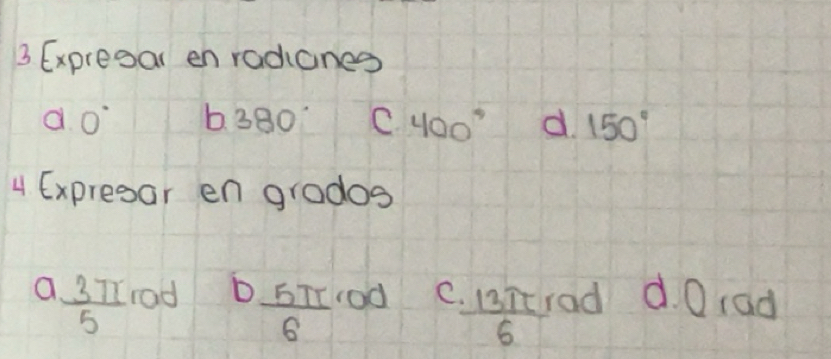 3 Expresar en radianes
a. 0° b. 380° c. 400° d. 150°
4 Expresar en grados
a 3π/5 rad b 5π/6 rad c. 13π/6 rad d. 0 rad